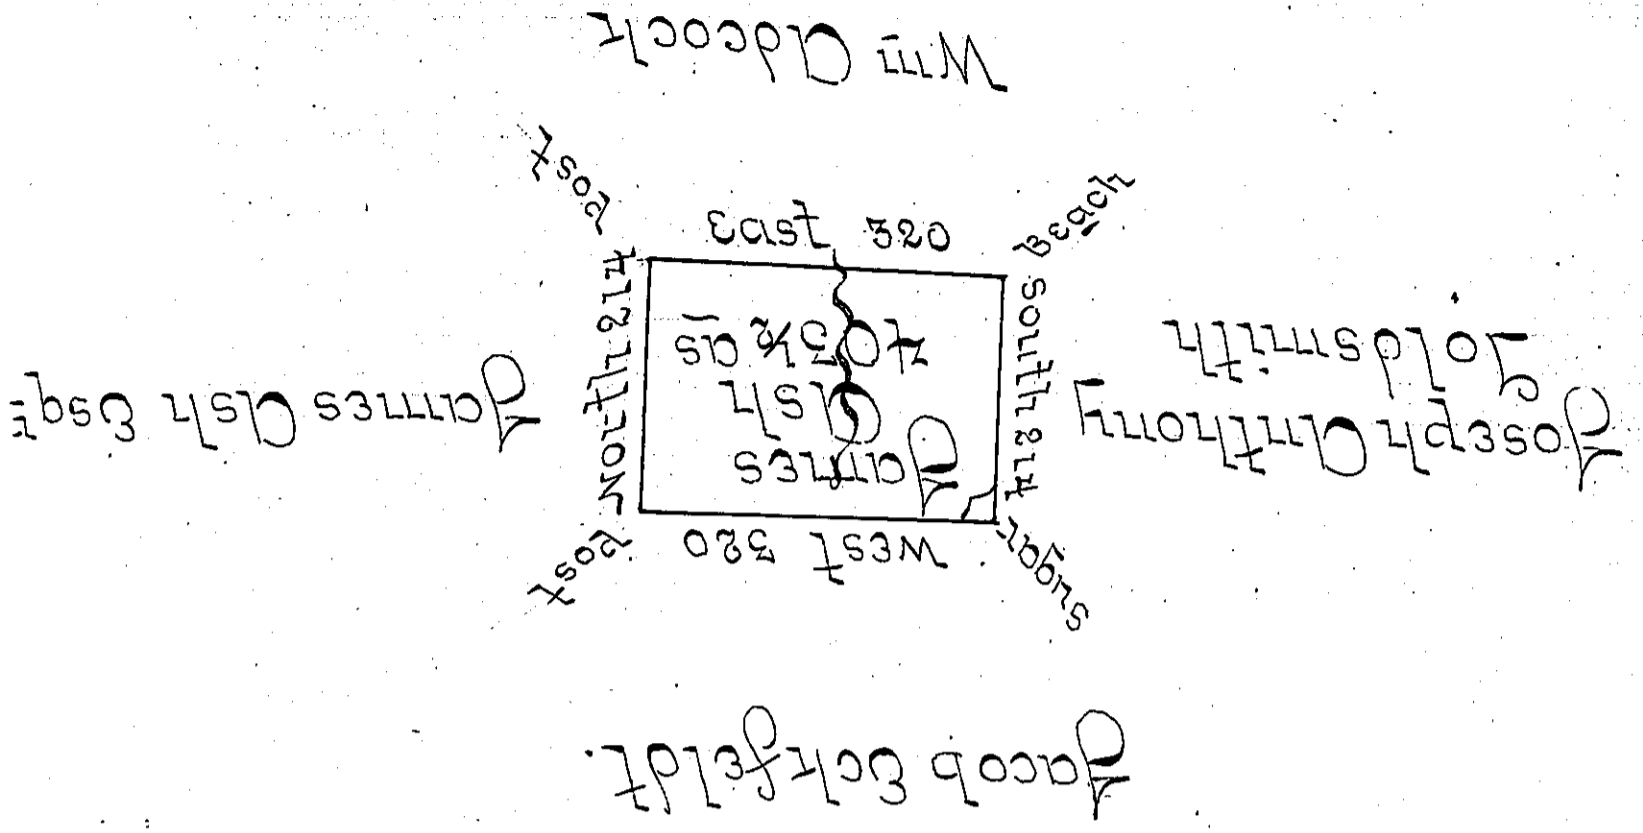 Jacob Eckfeldt.
Sugar
West 320
Post
Joseph Anthony
Goldsmith
South 214
James
Ash
403½ as
North 214
James Ash Esqr
Beach
East 320
Post
Wm Adcock